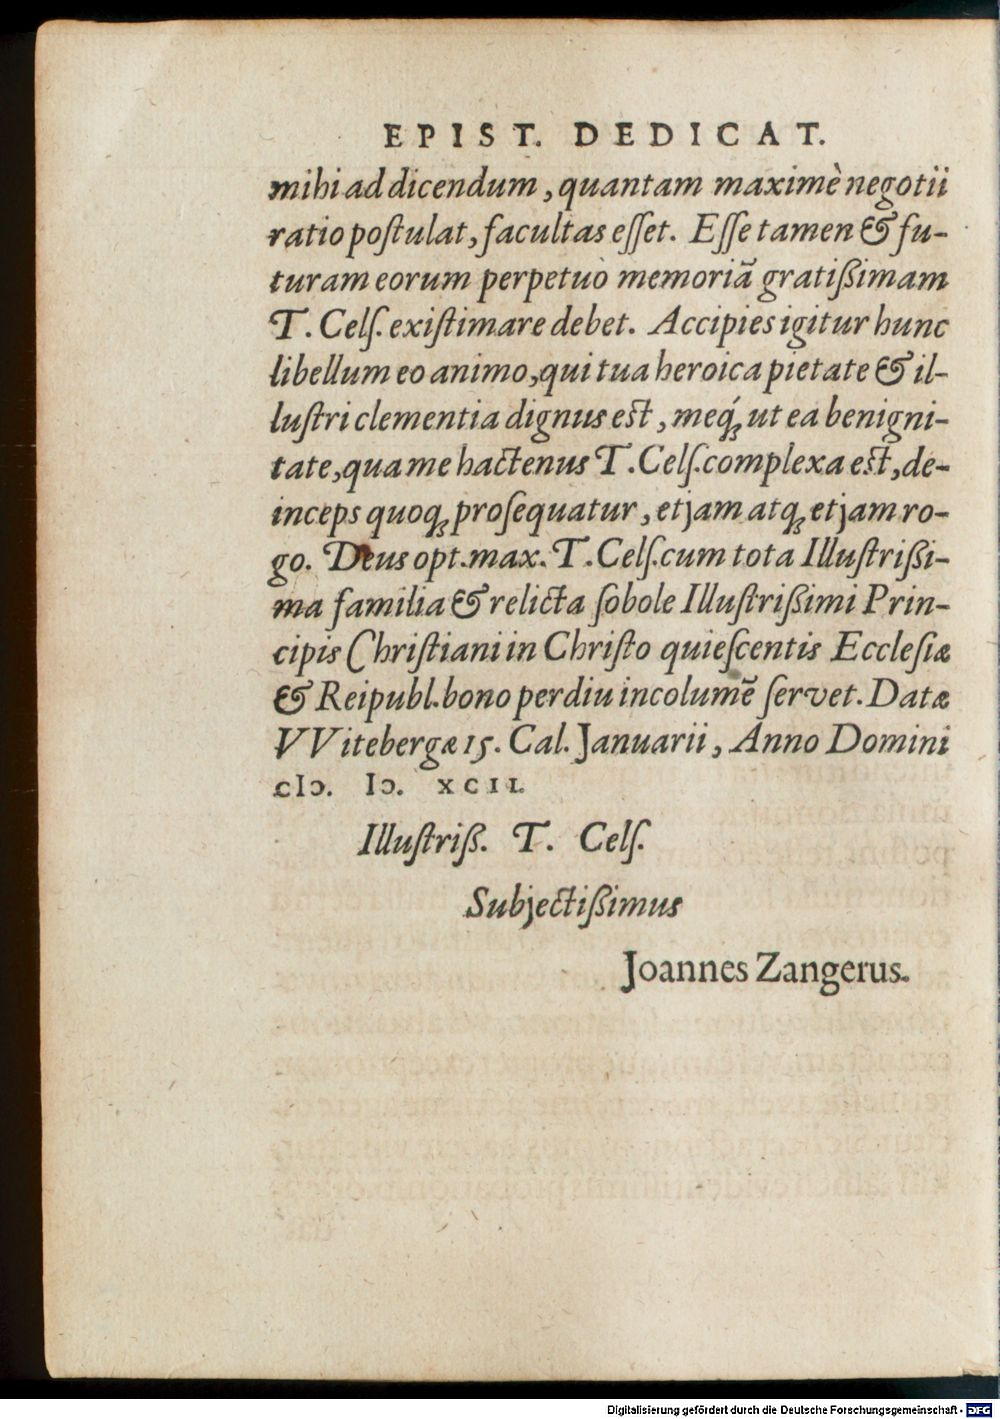 EPIST. DEDICAT.
mihi ad dicendum, quantam maximè negotii
ratio poſtulat, facultas eſſet. Eſſe tamen & fu-
turam eorum perpetuò memoriã gratißimam
T. Celſ. exiſtimare debet. Accipies igitur hunc
libellum eo animo, qui tua heroica pietate & il-
luſtri clementia dignus est, meq́ꝫ ut ea benigni-
tate, qua me hactenus T. Celſ. complexa est, de-
inceps quoqꝫ proſequatur, etjam atqꝫ etjam ro-
go. Deus opt. max. T. Celſ. cum tota Illuſtrißi-
ma familia & relicta ſobole Illuſtrißimi Prin-
cipis Chriſtiani in Chriſto quieſcentis Eccleſiæ
& Reipubl. bono perdiu incolumẽ ſervet. Datæ
VVitebergæ 15. Cal. Januarii, Anno Domini
cIↄ. Iↄ. XCII.
Illuſtriß. T. Celſ.
Subjectißimus
Joannes Zangerus.
Digitalisierung gefördert durch die Deutsche Forschungsgemeinschaft - DFG